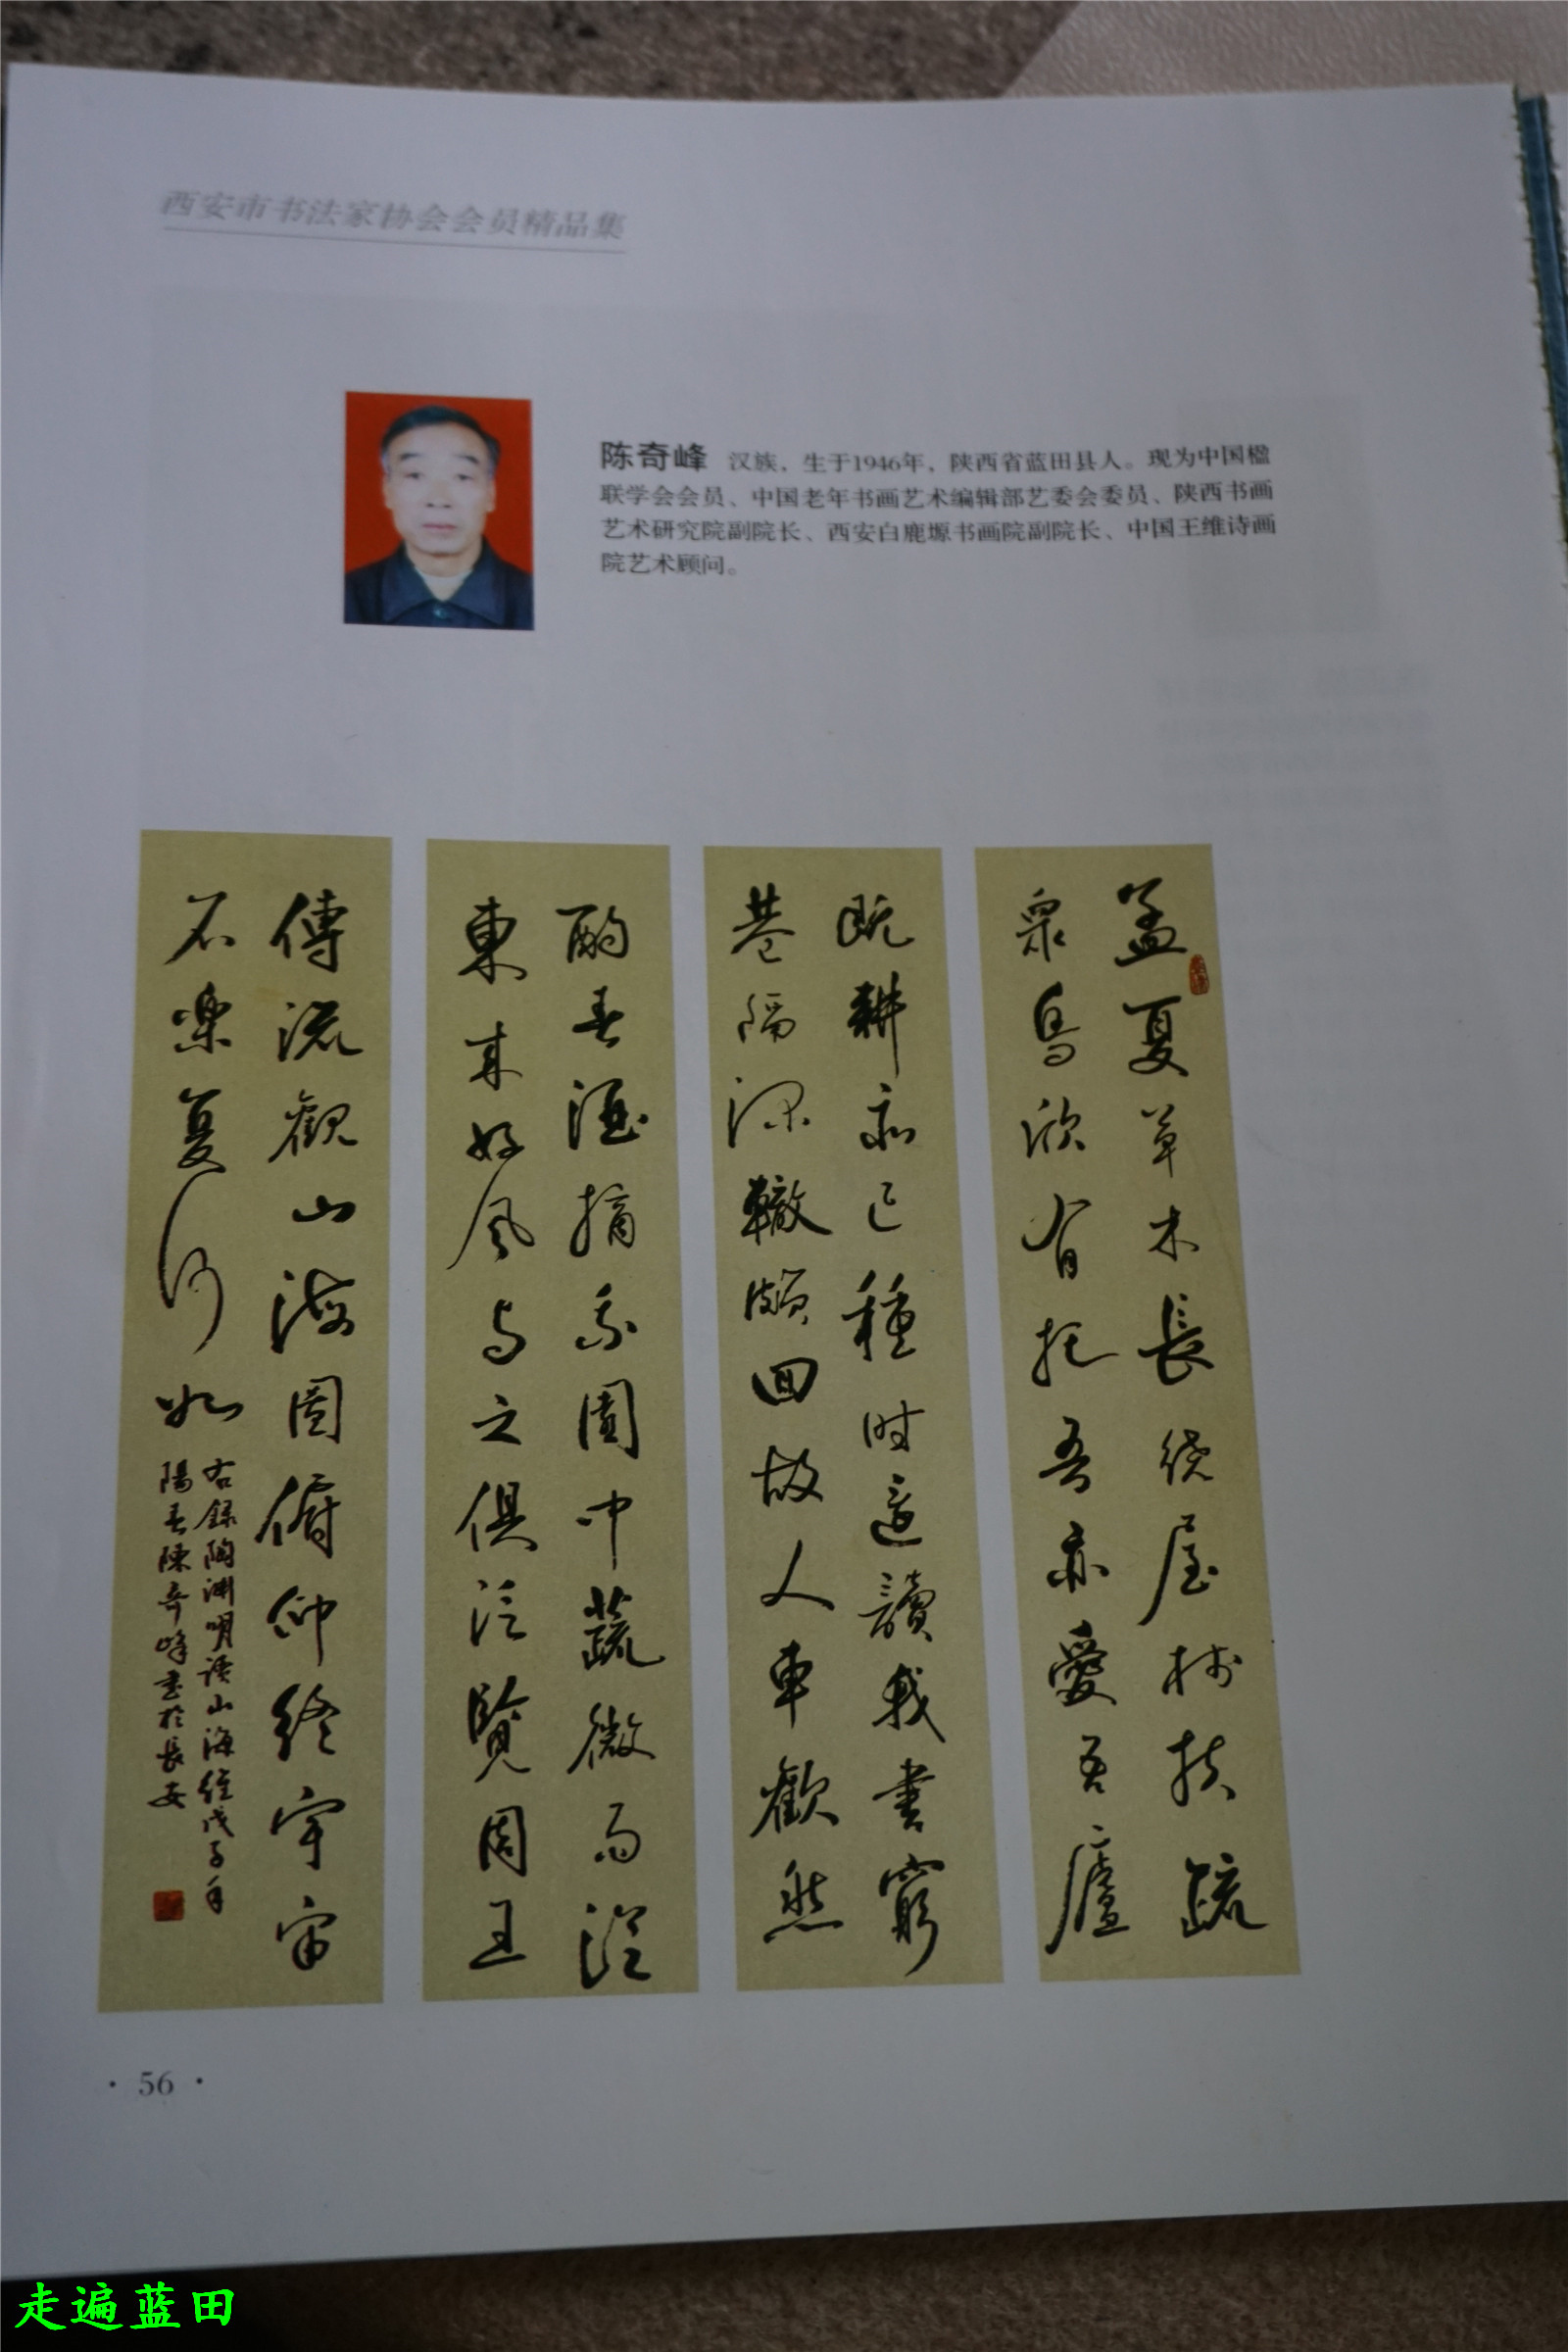 西安市书法家协会会员精品集
陈奇峰 汉族，生于1946年，陕西省蓝田县人。现为中国楹
联学会会员、中国老年书画艺术编辑部艺委会委员、陕西书画
艺术研究院副院长、西安白鹿塬书画院副院长、中国王维诗画
院艺术顾问。
孟夏草木長绕屋树扶疏
衆鳥欣有托吾亦愛吾廬
既耕亦已種时還讀我書窮
巷隔深轍頗回故人車歡然
酌春酒摘我園中蔬微雨從
東来好風与之俱泛覽周王
傳流觀山海圖俯仰终宇宙
不樂复何如
右録陶渊明读山海经戊子年
陽春陳奇峰書於長安
· 56 ·
走遍蓝田